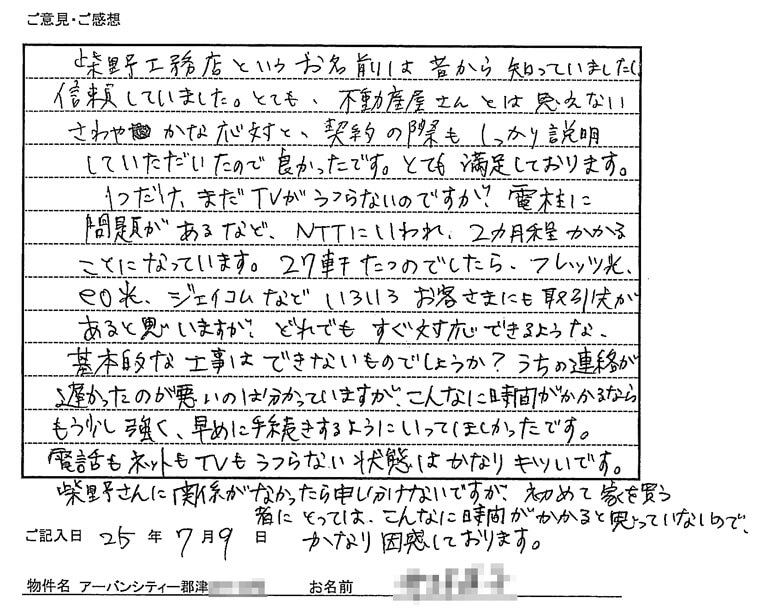 ご意見・ご感想
柴野工務店というお名前は昔から知っていましたし
信頼していました。とても、不動産屋さんとは思えない
さわやかな応対と、契約の際もしっかり説明
していただいたので良かったです。とても満足しております。
1つだけ、まだTVがうつらないのですが、電柱に
問題があるなど、NTTにいわれ、2カ月程かかる
ことになっています。27軒たつのでしたら、フレッツ光、
eo光、ジェイコムなどいろいろお客さまにも取引先が
あると思いますが、どれでもすぐ対応できるような、
基本的な工事はできないものでしょうか?うちの連絡が
遅かったのが悪いのは分かっていますが、こんなに時間がかかるなら
もう少し強く、早めに手続きするようにいってほしかったです。
電話もネットもTVもうつらない状態はかなりキツいです。
柴野さんに関係がなかったら申し分けないですが、初めて家を買う
者にとっては、こんなに時間がかかると思っていないので、
かなり困惑しております。
ご記入日 25年7月9日
物件名 アーバンシティー郡津 お名前